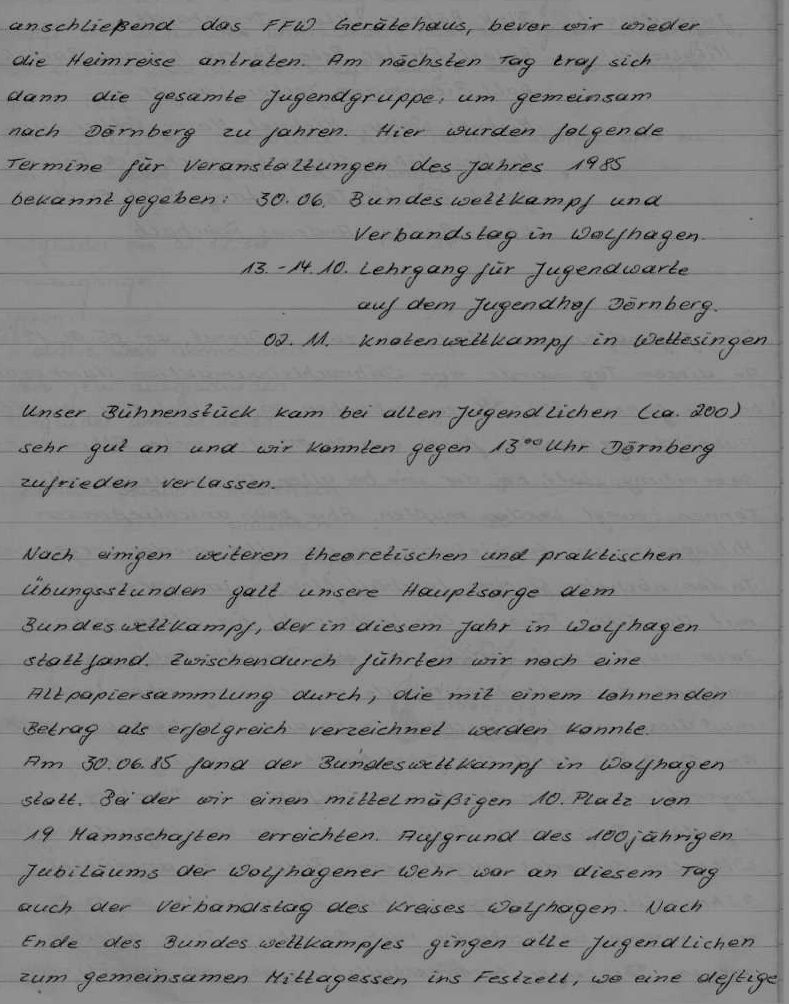 anschließend das FFW Gerätehaus, bevor wir wieder
die Heimreise antraten. Am nächsten Tag traf sich
dann die gesamte Jugendgruppe, um gemeinsam
nach Dörnberg zu fahren. Hier wurden folgende
Termine für Veranstaltungen des Jahres 1985
bekannt gegeben: 30.06. Bundeswettkampf und
Verbandstag in Wolfhagen.
13.-14.10. Lehrgang für Jugendwarte
auf dem Jugendhof Dörnberg.
02.11. Knotenwettkampf in Wettesingen
Unser Bühnenstück kam bei allen Jugendlichen (ca. 200)
sehr gut an und wir konnten gegen 13°° Uhr Dörnberg
zufrieden verlassen.
Nach einigen weiteren theoretischen und praktischen
Übungsstunden galt unsere Hauptsorge dem
Bundeswettkampf, der in diesem Jahr in Wolfhagen
stattfand. Zwischendurch führten wir noch eine
Altpapiersammlung durch, die mit einem lohnenden
Betrag als erfolgreich verzeichnet werden konnte.
Am 30.06.85 fand der Bundeswettkampf in Wolfhagen
statt. Bei der wir einen mittelmäßigen 10. Platz von
19 Mannschaften erreichten. Aufgrund des 100jährigen
Jubiläums der Wolfhagener Wehr war an diesem Tag
auch der Verbandstag des Kreises Wolfhagen. Nach
Ende des Bundeswettkampfes gingen alle Jugendlichen
zum gemeinsamen Mittagessen ins Festzelt, wo eine deftige